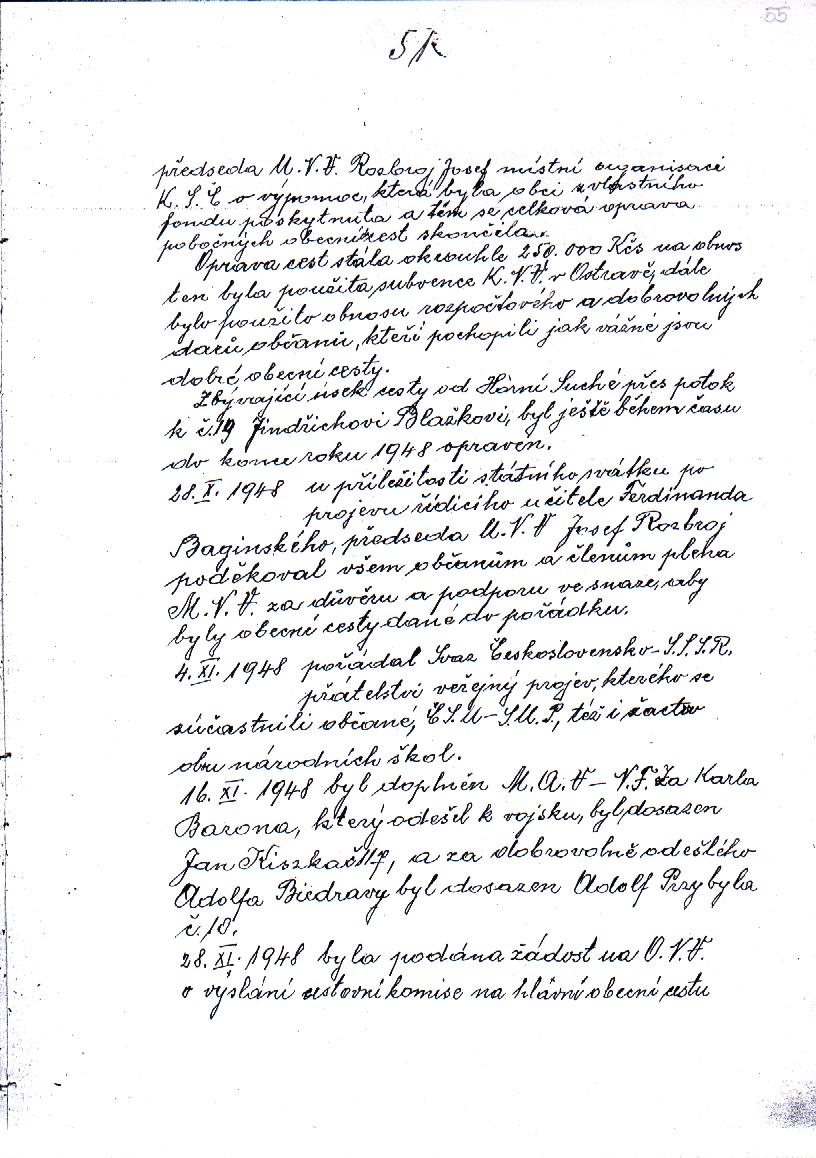 55
předseda M.V.V. Rozbroj Josef místní organisaci
K.S.Č o výpomoc, která byla obci z vlastního
fondu poskytnuta a tím se celková oprava
pobočných obecních cest skončila.
Oprava cest stála okrouhle 250.000 Kčs na obnos
ten byla použita subvence K.N.V. v Ostravě, dále
bylo použito obnosu rozpočtového a dobrovolných
darů občanů, kteří pochopili jak vážné jsou
dobré obecní cesty.
Zbývající úsek cesty od Horní Suché přes potok
k č.19 Jindřichovi Blažkovi, byl ještě během času
do konce roku 1948 opraven.
28.X. 1948 u příležitosti státního svátku po
projevu řídícího učitele Ferdinanda
Baginského, předseda M.V.V Josef Rozbroj
poděkoval všem občanům a členům plena
M.N.V. za důvěru a podporu ve snaze, aby
byly obecní cesty dané do pořádku.
4.XI. 1948 pořádal Svaz Československo-S.S.S.R.
přátelství veřejný projev, kterého se
súčastnili občané, Č.S.M-S.M.P., též i žactvo
obu národních škol.
16.XI. 1948 byl doplněn M.A.V – N.F. Za Karla
Barona, který odešel k vojsku, byl dosazen
Jan Kiszka č 117, a za dobrovolně odešlého
Adolfa Biedravy byl dosazen Adolf Przybyla
č.10.
28.XI. 1948 byla podána žádost na O.N.V.
o vyslání cestovní komise na hlavní obecní cestu